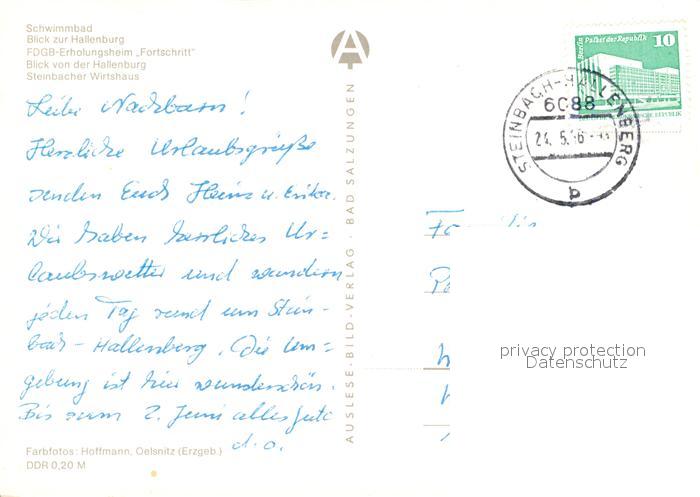 Schwimmbad
Blick zur Hallenburg
FDGB-Erholungsheim „Fortschritt"
Blick von der Hallenburg
Steinbacher Wirtshaus
Liebe Nachbarn!
Herzliche Urlaubsgrüße
senden Euch Heinz u. Erika.
Wir haben herrliches Ur=
laubswetter und wandern
jeden Tag rund um Stein-
bach-Hallenberg. Die Um=
gebung ist hier wunderschön.
Bis zum 2. Juni alles gute
d. o.
Farbfotos: Hoffmann, Oelsnitz (Erzgeb.)
DDR 0,20 M
AUSLESE-BILD-VERLAG · BAD SALZUNGEN
Berlin Palast der Republik
10
STEINBACH-HALLENBERG
6088
24. 5.
a
privacy protection
Datenschutz